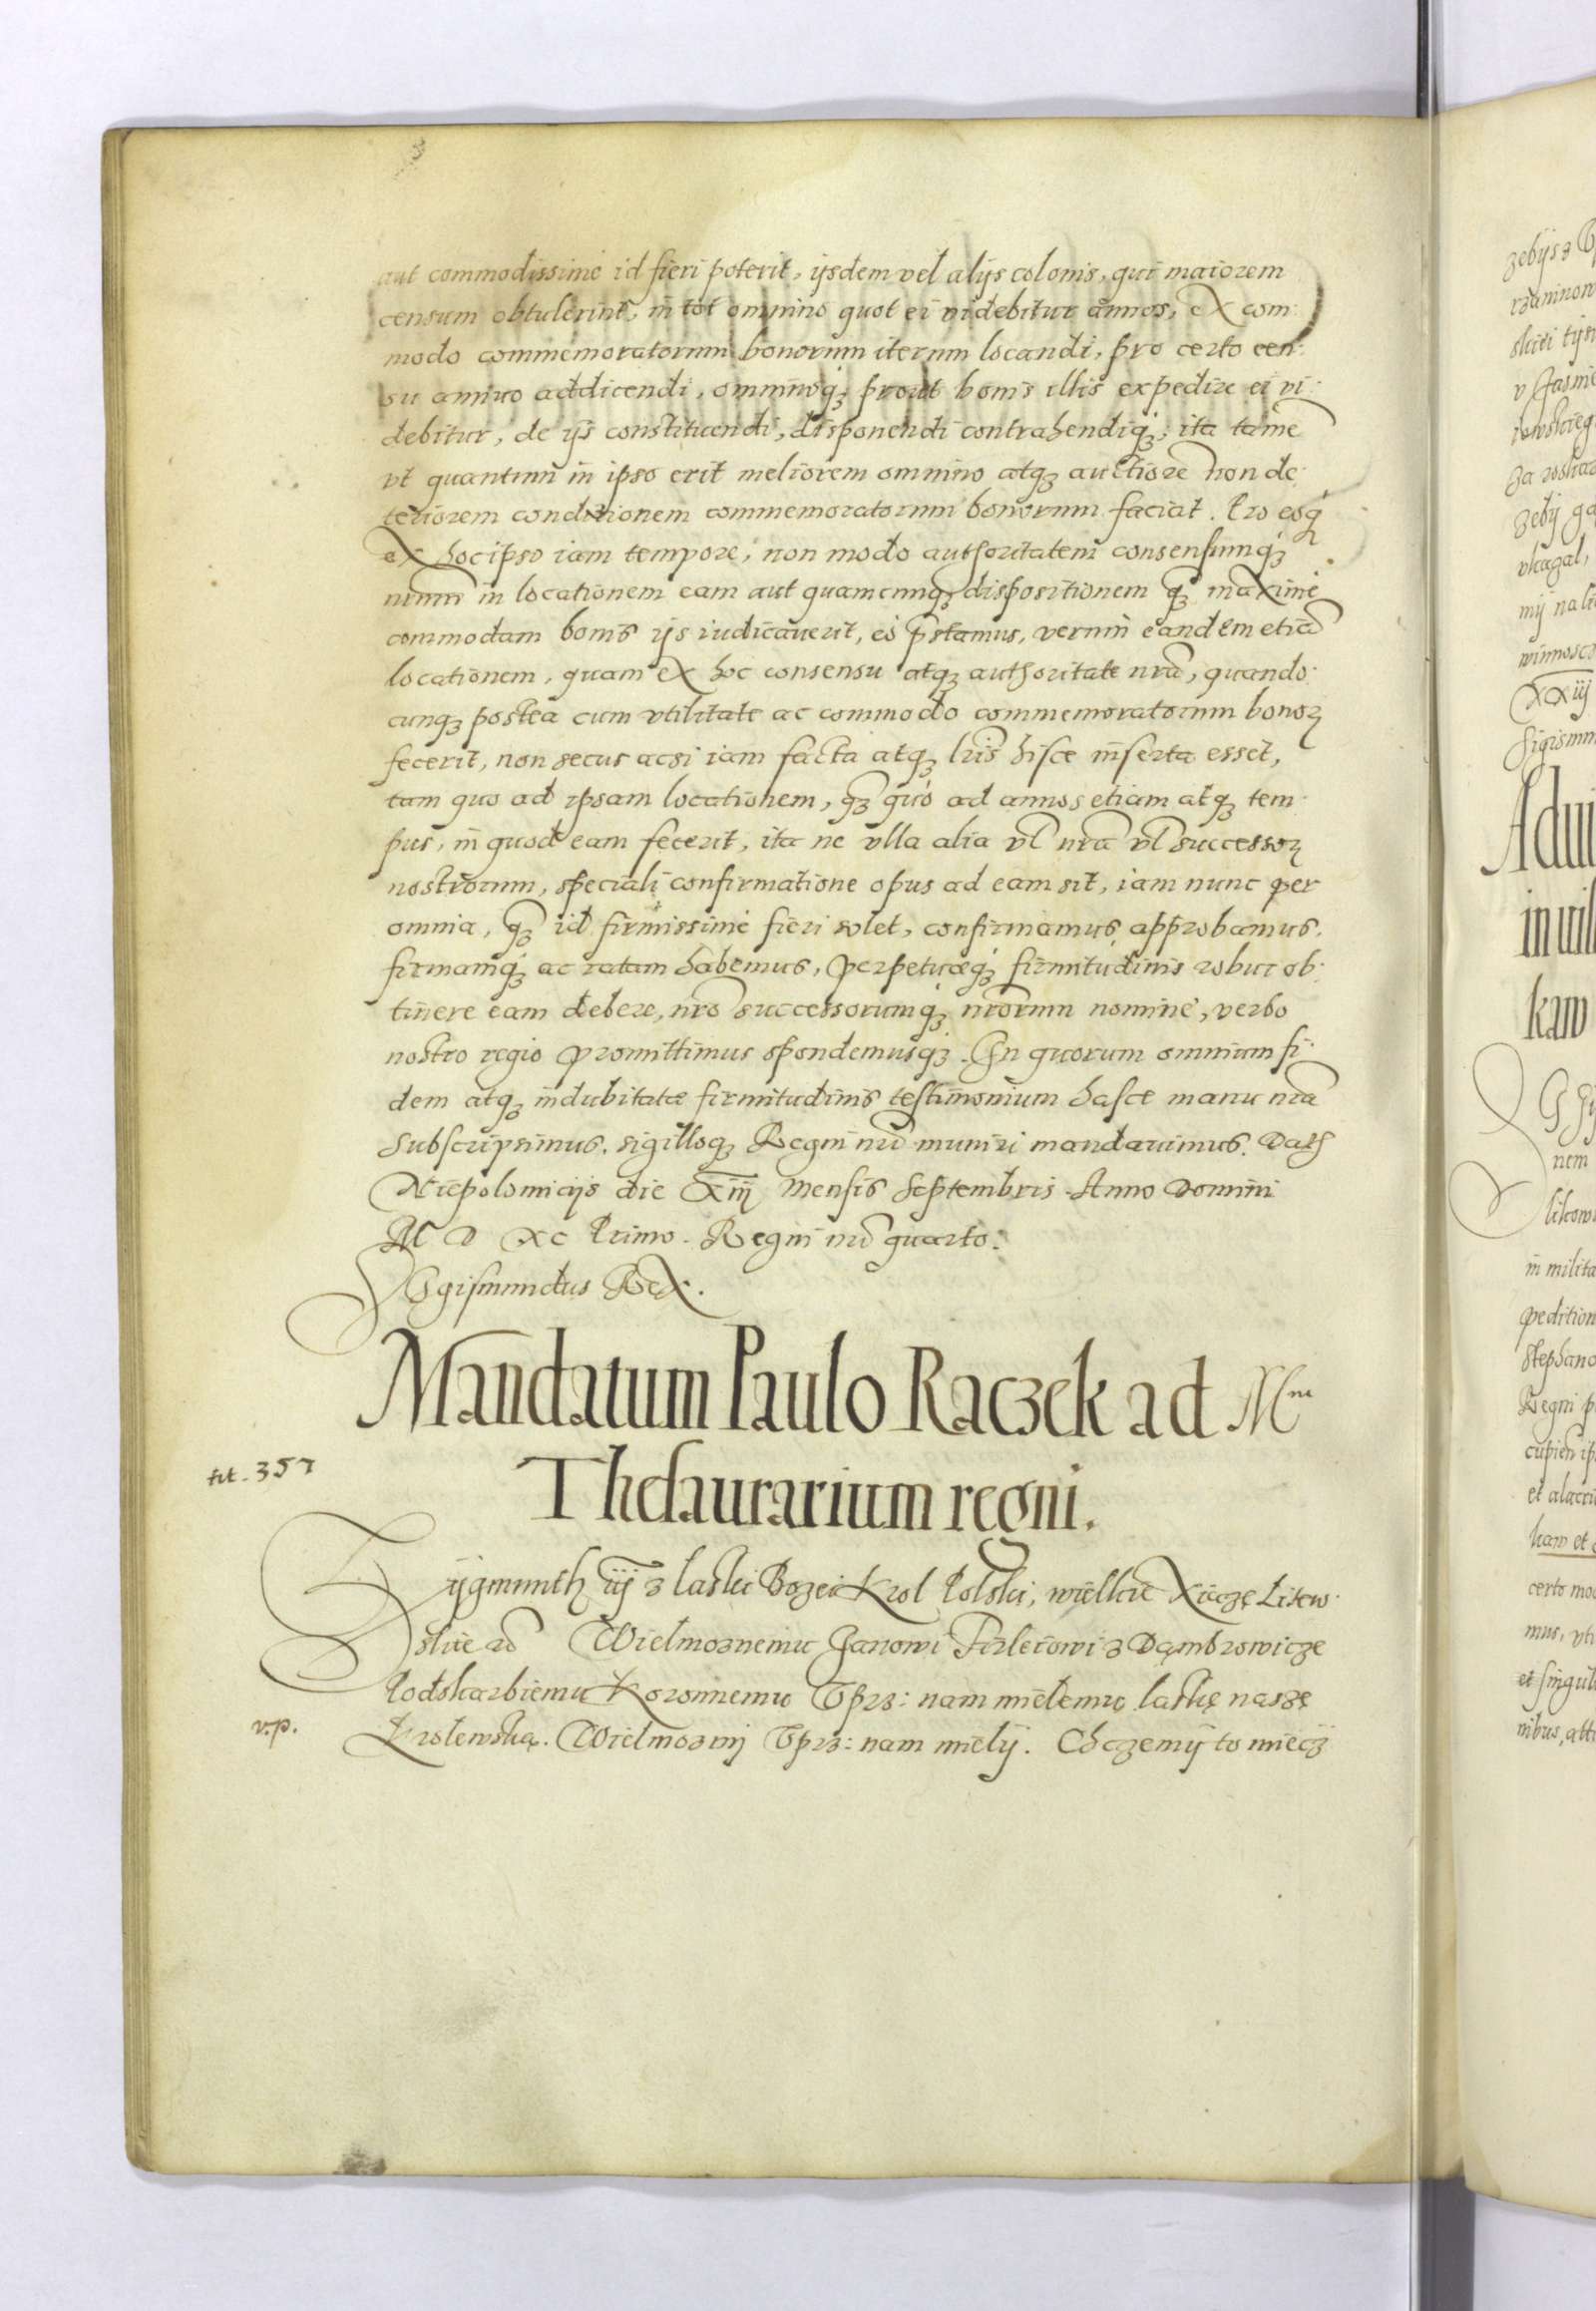 aut commodissime id fieri poterit, ijsdem vel alijs colonis, qui maiorem
censum obtulerint, in tot omnino quot ei videbitur annos, ex com:
modo commemoratorum bonorum iterum locandi, pro certo cen:
su annuo addicendi, omninoq3 prout bonis illis expedire ei vi:
debitur, de ijs constituendi, disponendi contrahendiq3, ita tamē
vt quantum in ipso erit meliorem omnino atq3 auctiorē non de:
teriorem conditionem commemoratorum bonorum faciat. Pro eoq3
ex hoc ipso iam tempore, non modo authoritatem consensumq3
nrum in locationem eam aut quamcunq3 dispositionem q3 maxime
commodam bonis ijs iudicauerit, ei p̄stamus, verum eandem etiā
locationem, quam ex hoc consensu atq3 authoritate nrā, quando:
cunq3 postea cum vtilitate ac commodo commemoratorum bonoꝝ
fecerit, non secus acsi iam facta atq3 lrīs hisce inserta esset,
tam quo ad ipsam locationem, q3 quo ad annos etiam atq3 tem:
pus, in quod eam fecerit, ita ne vlla alia vl̄ nrā vl̄ successoꝝ
nostrorum, speciali confirmatione opus ad eam sit, iam nunc per
omnia, q3 id firmissime fieri solet, confirmamus, approbamus,
firmamq3 ac ratam habemus, perpetuæq3 firmitudinis robur ob:
tinere eam debere, nrō successorumq3 nrōrum nomine, verbo
nostro regio promittimus spondemusq3. In quorum omnium fi:
dem atq3 indubitatæ firmitudinis testimonium hasce manu nrā
subscripsimus, sigilloq3 Regni nrī muniri mandauimus. Dat
Niepolomicijs die Xiij mensis Septembris Anno Domini
M D XC Primo. Regni nrī quarto.
Sigismundus Rex.
Mandatum Paulo Raczek ad Mcm
Thesaurarium regni.
tit. 357
Zygmunth iij z laski Bozei Krol Polski, wielkie Xiązę Litew:
skie etc Wielmoznemu Janowi Firleiowi z Dąmbrowicze
Podskarbiemu Koronnemu Uprz: nam miełemu laskę naszę
v.p.
Krolewską. Wielmozny Uprz: nam mielÿ. Chczemÿ to miecz